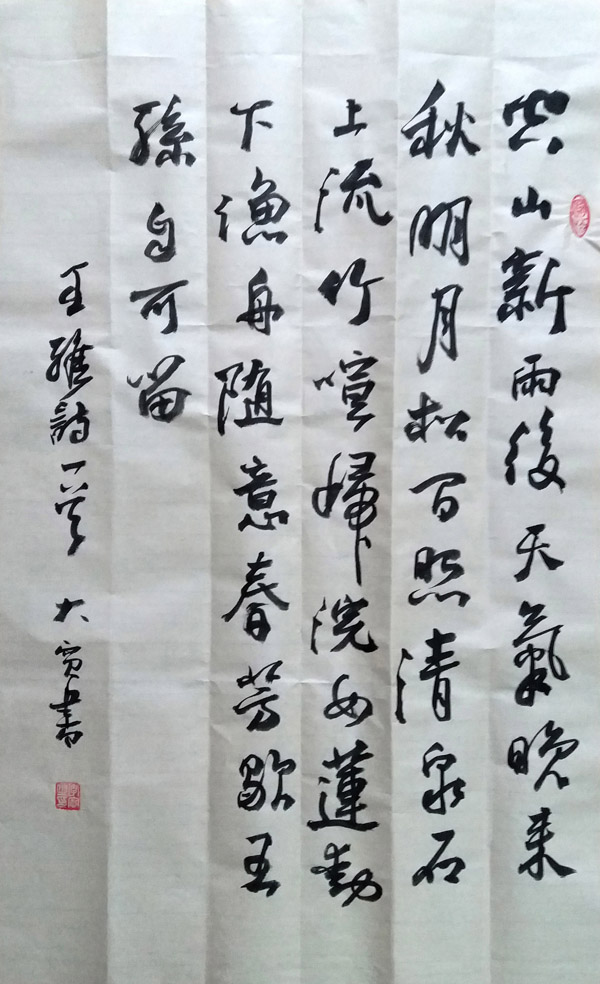 空山新雨後天氣晚来
秋明月松间照清泉石
上流竹喧歸浣女蓮動
下漁舟随意春芳歇王
孫自可留
王維詩一首 大 書